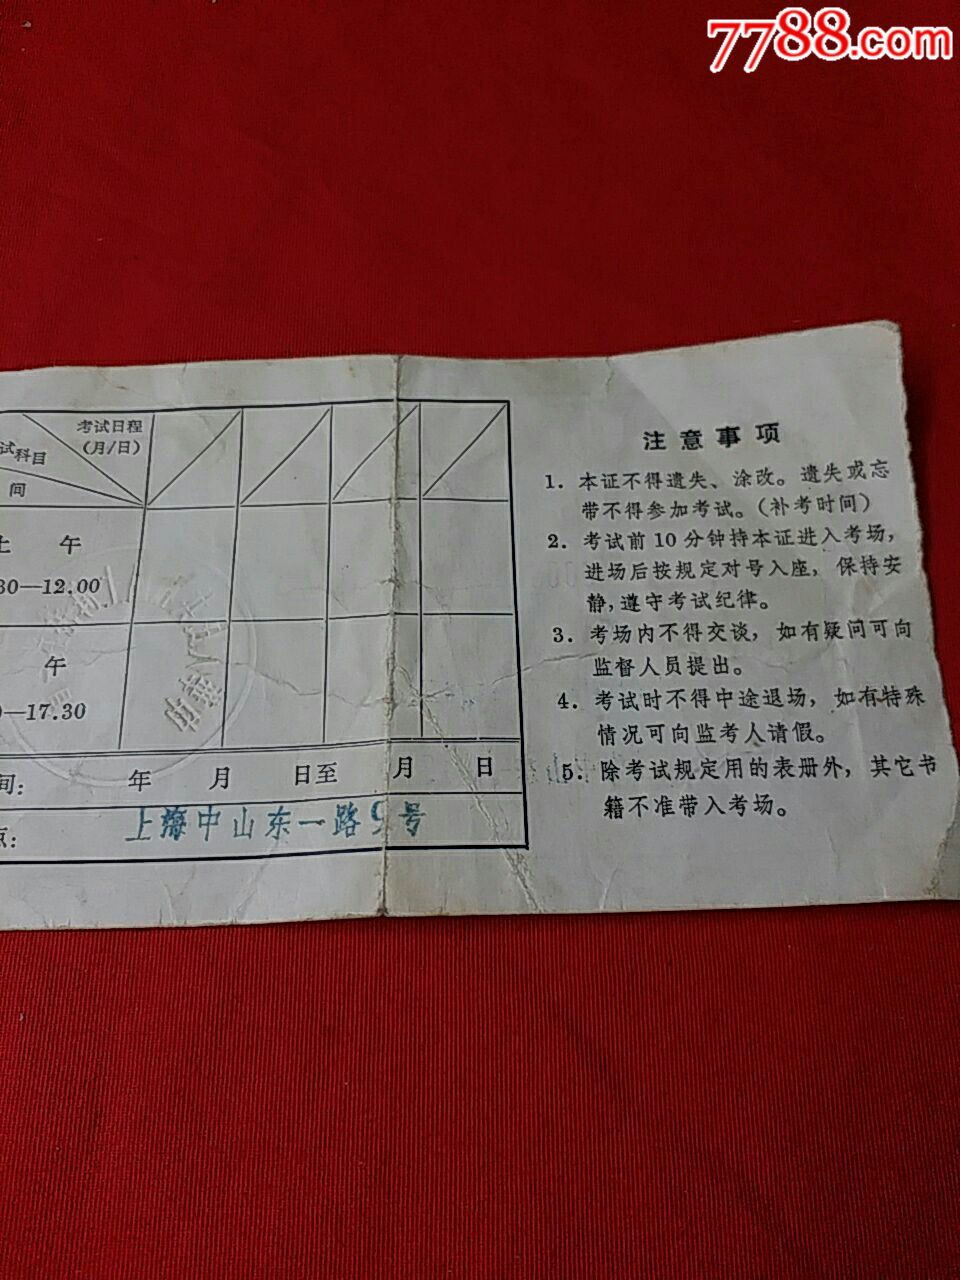 7788.com
考试日程
(月/日)
试科目
间
上 午
30—12.00
午
0—17.30
间: 年 月 日至 月 日
点: 上海中山东一路
号
注意事项
1. 本证不得遗失、涂改。遗失或忘
带不得参加考试。(补考时间)
2. 考试前10分钟持本证进入考场,
进场后按规定对号入座, 保持安
静,遵守考试纪律。
3. 考场内不得交谈, 如有疑问可向
监督人员提出。
4. 考试时不得中途退场, 如有特殊
情况可向监考人请假。
5. 除考试规定用的表册外, 其它书
籍不准带入考场。